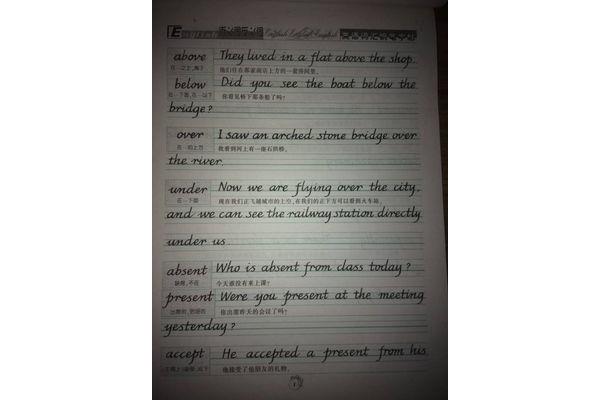 English English English
above They lived in a flat above the shop.
在…之上,高于 他们住在那家商店上方的一套房间里。
below Did you see the boat below the
在…下面,在…以下 你看见桥下那条船了吗?
bridge?
over I saw an arched stone bridge over
在…的上方 我看到河上有一座石拱桥。
the river.
under Now we are flying over the city,
在…下面 现在我们正飞越城市的上空,在我们的正下方可以看到火车站。
and we can see the railway station directly
under us
absent Who is absent from class today?
缺席,不在 今天谁没有来上课?
present Were you present at the meeting
出席的,到场的 你出席昨天的会议了吗?
yesterday?
accept He accepted a present from his
他接受了他朋友的礼物。
1